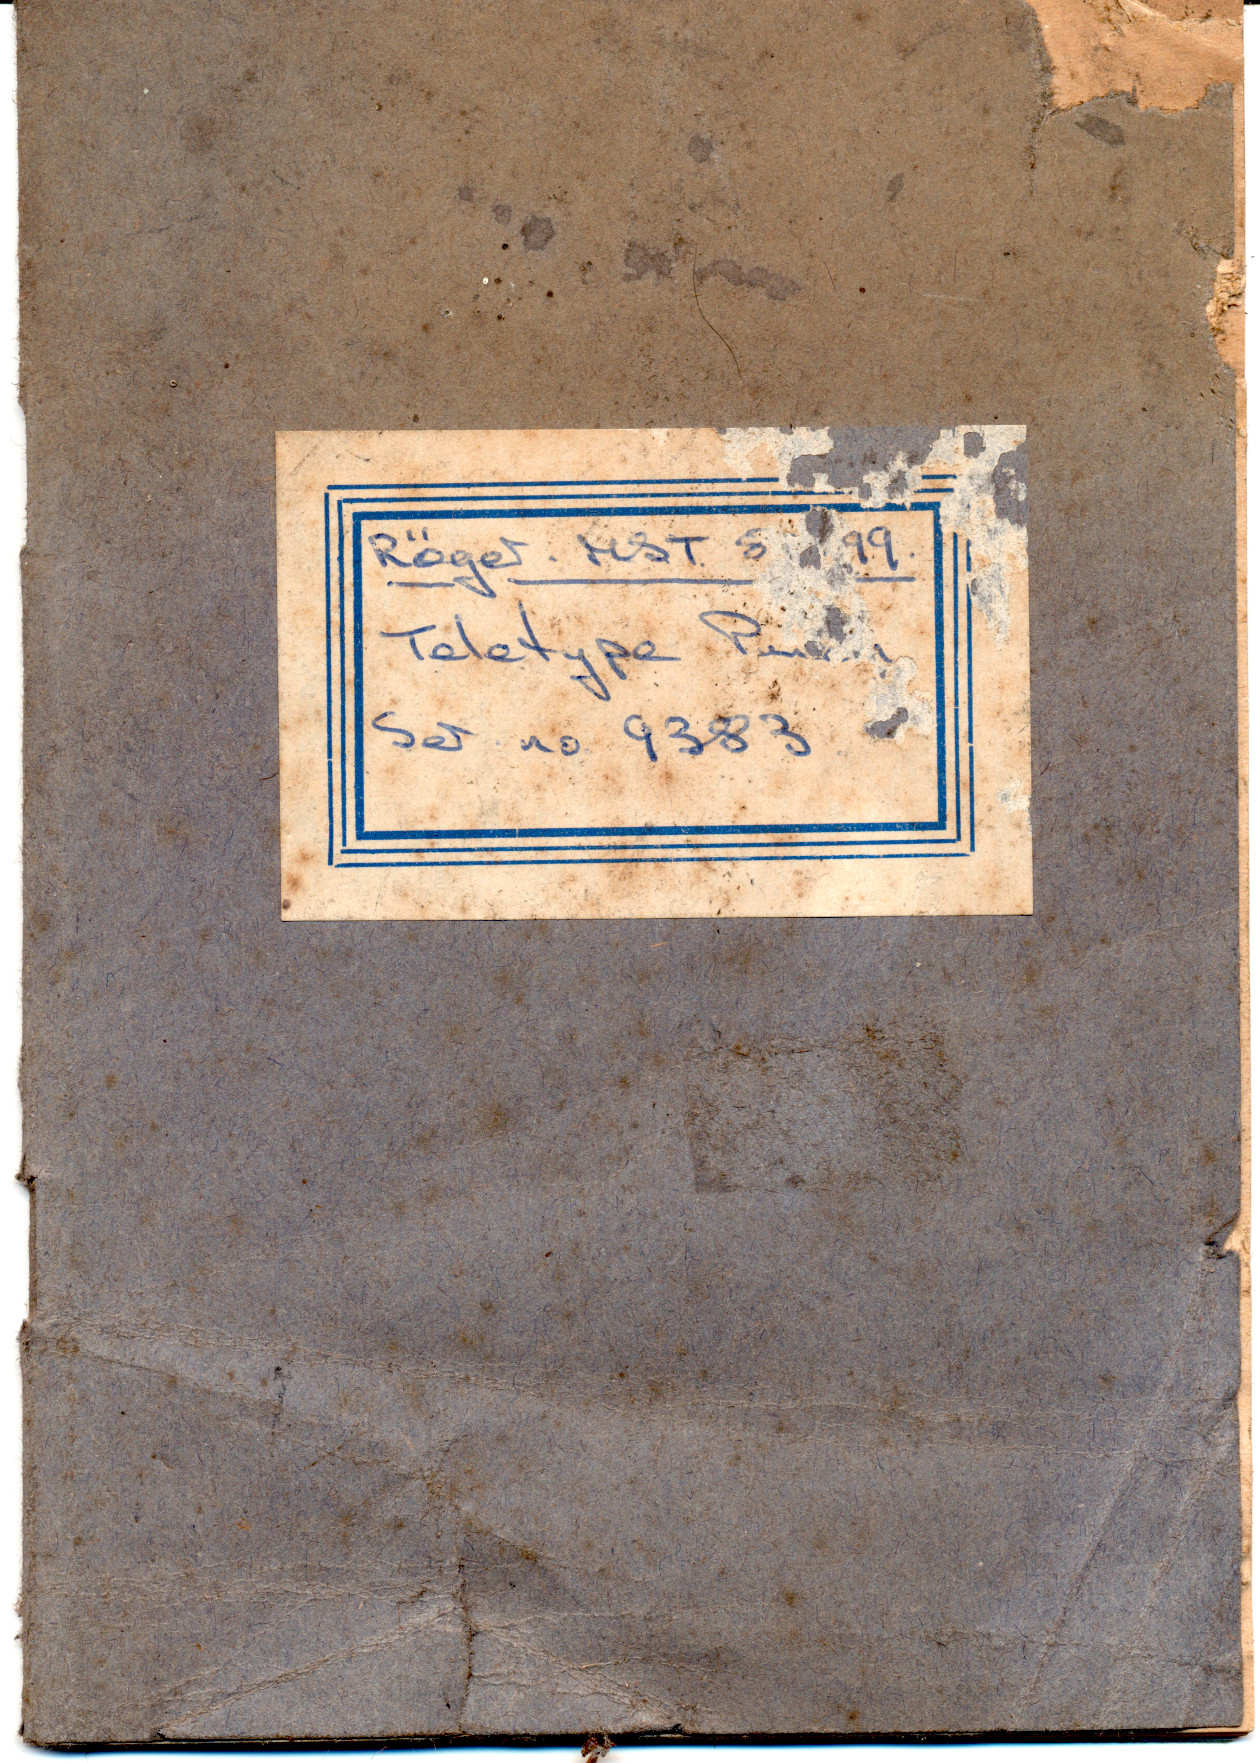 Räget. MST. S 99.
Teletype
Set no 9383